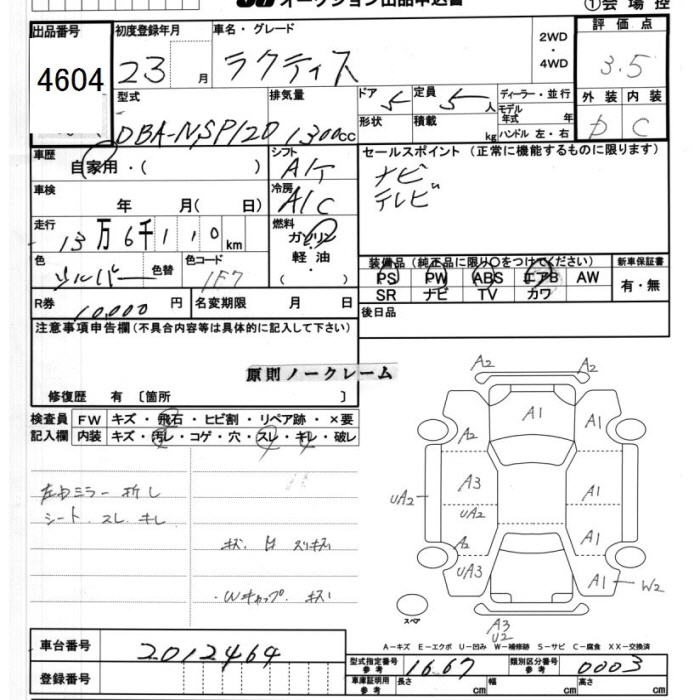 オークション出品申込書
①会場控
出品番号
4604
初度登録年月
23 月
車名・グレード
ラクティス
2WD
・
4WD
評価点
3.5
型式
DBA-NSP120
排気量
1300cc
ドア 5
定員 5人
形状
積載 kg
ディーラー・並行
モデル年式 年
ハンドル 左・右
外装 内装
D C
車歴
自家用・( )
シフト
A/T
セールスポイント (正常に機能するものに限ります)
ナビ
テレビ
車検
年 月( 日)
冷房
A/C
走行
13万6千110km
燃料
ガソリン
軽油
( ・ )
色
シルバー
色替
色コード
1F7
装備品 (純正品に限り○をつけてください)
PS PW ABS エアB AW
SR ナビ TV カワ
新車保証書
有・無
R券
10,000 円
名変期限 月 日
後日品
注意事項申告欄(不具合内容等は具体的に記入して下さい)
原則ノークレーム
修復歴 有 〔箇所 〕
検査員
記入欄
FW キズ・飛石・ヒビ割・リペア跡・×要
内装 キズ・汚レ・コゲ・穴・スレ・キレ・破レ
左ドミラー 折レ
シート. スレ キレ
キズ. 凹 スリキズ
・Wキャップ. キズ
A2
A2
A1
A2
A1
A3
UA2
UA2
A1
A2
A1
UA3
A1
W2
スペア
A3
U2
A−キズ E−エクボ U−凹み W−補修跡 S−サビ C−腐食 XX−交換済
車台番号
2012464
型式指定番号
参考
1667
類別区分番号
参考
0003
登録番号
車庫証明用
参考
長さ cm
幅 cm
高さ cm